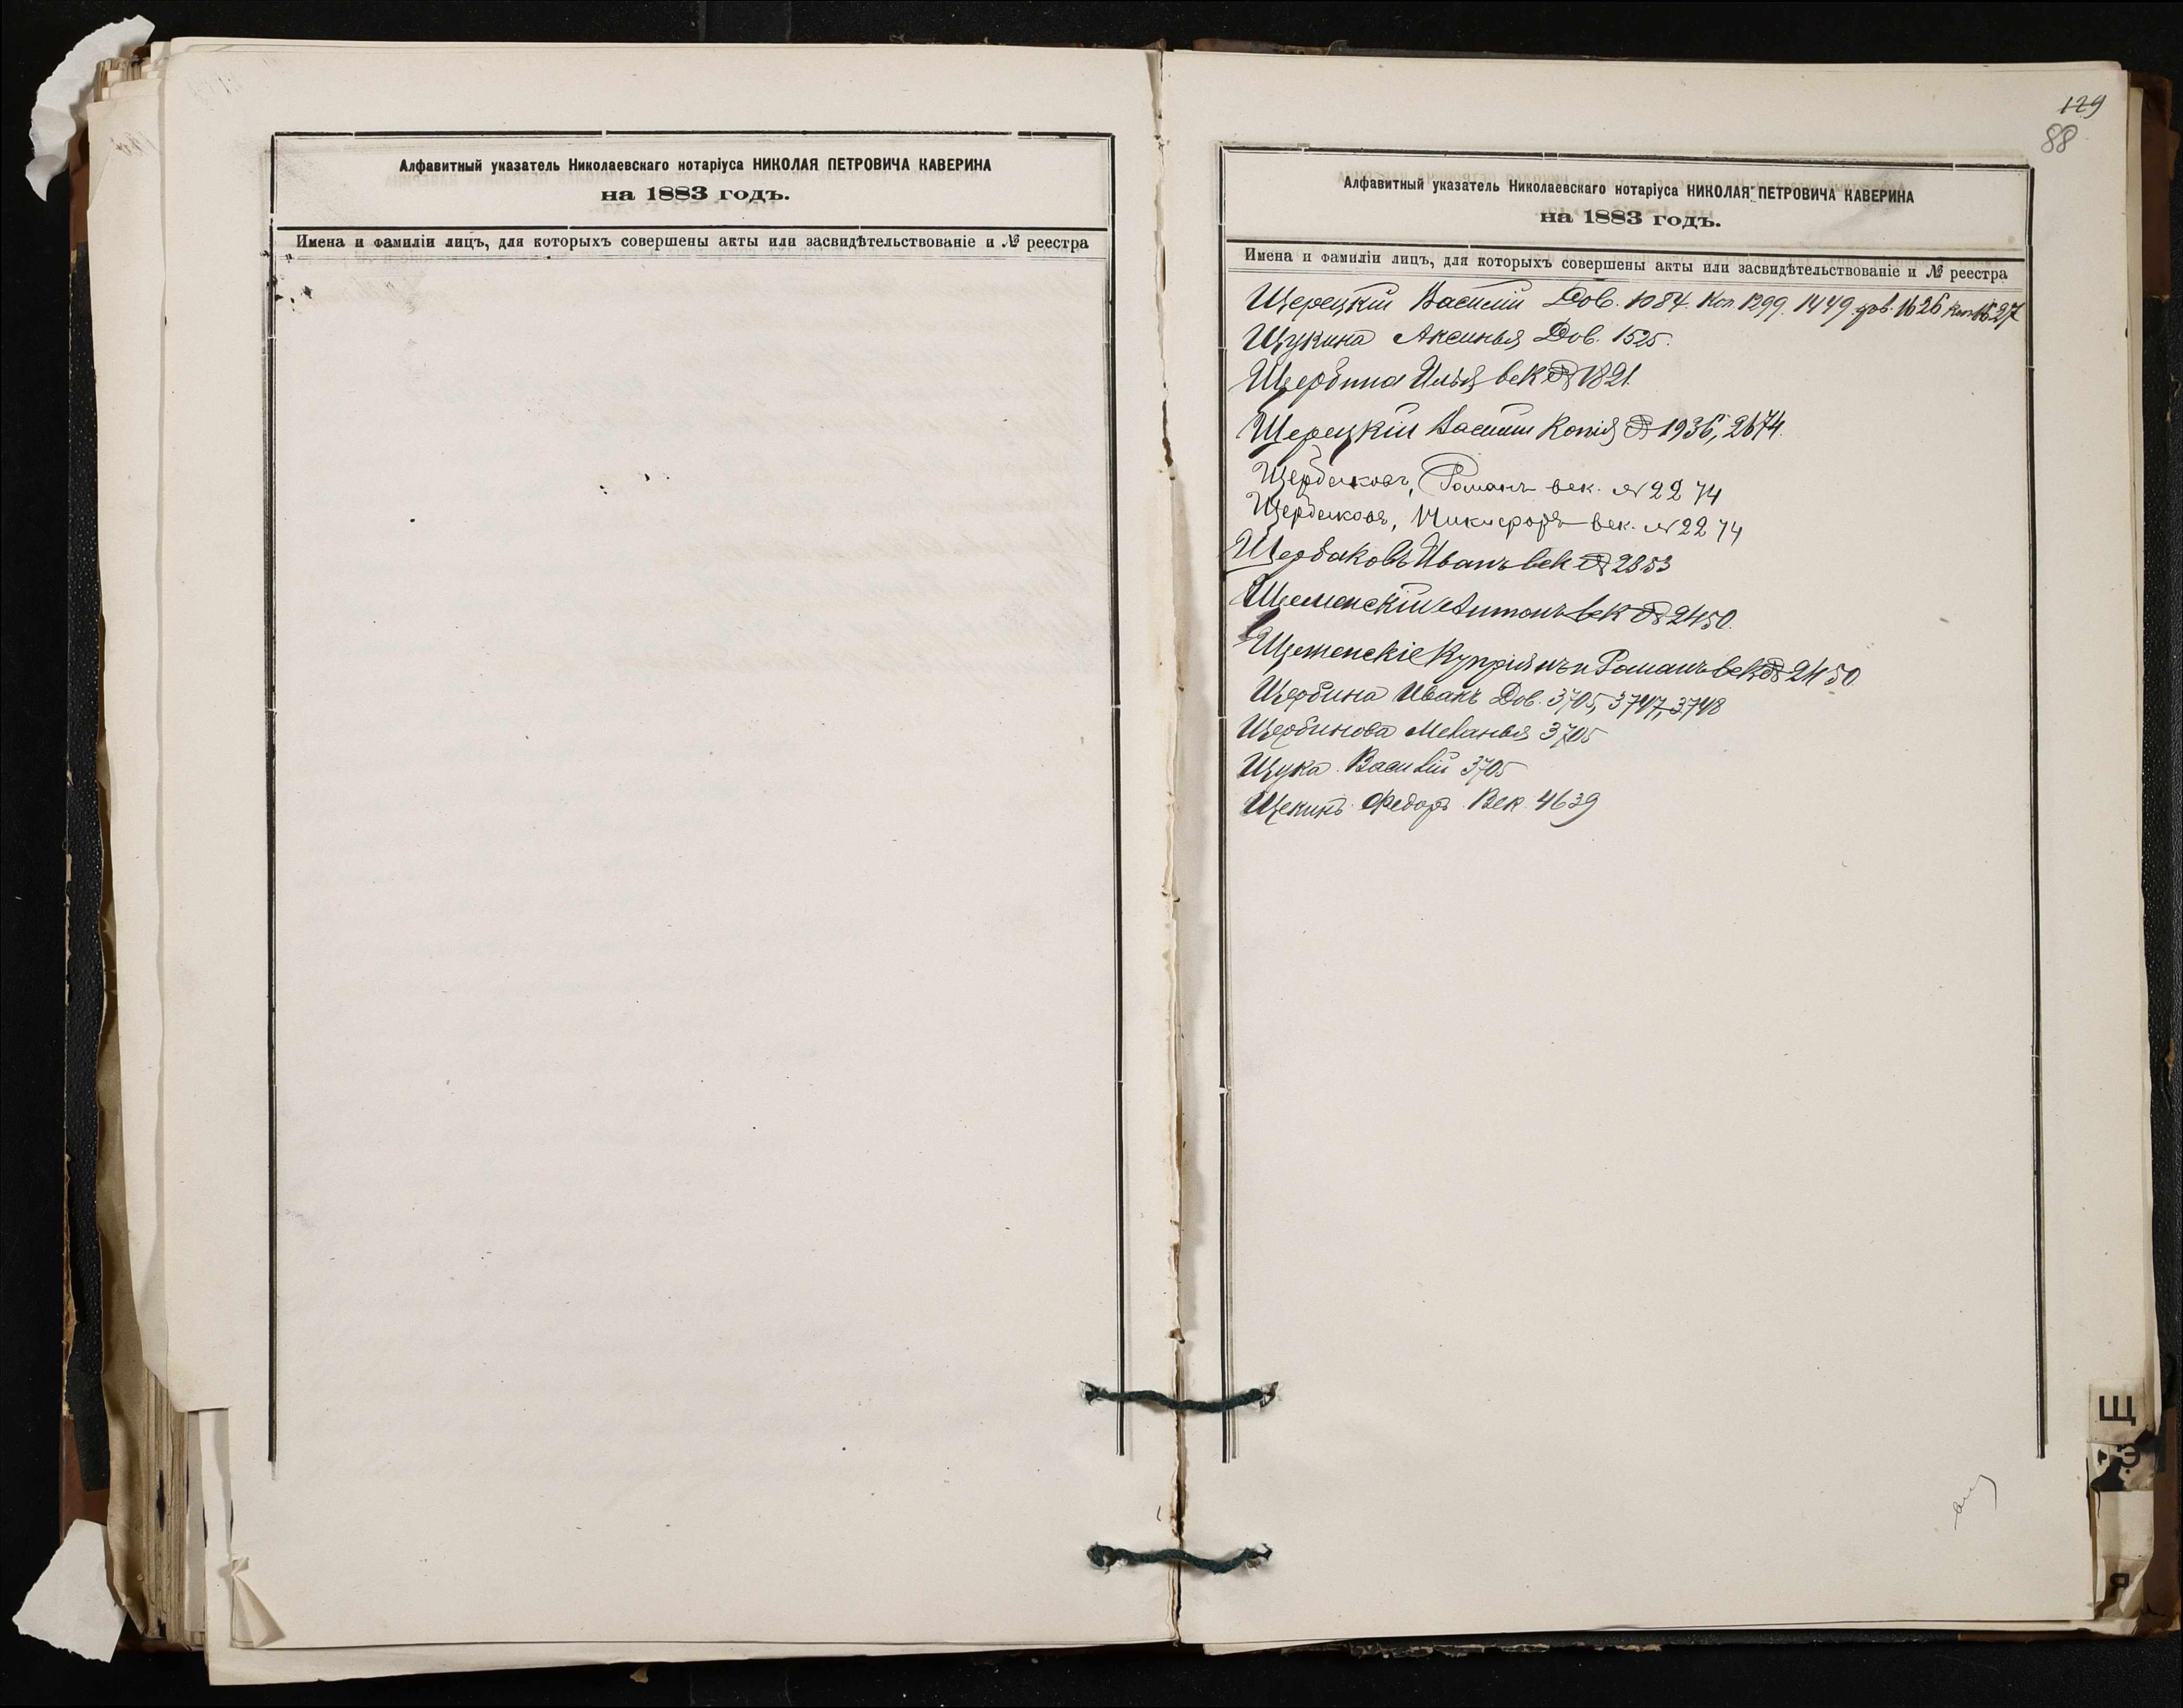 Алфавитный указатель Николаевскаго нотаріуса НИКОЛАЯ ПЕТРОВИЧА КАВЕРИНА
на 1883 годъ.
Имена и фамиліи лицъ, для которыхъ совершены акты или засвидѣтельствованіе и № реестра
129
88
Алфавитный указатель Николаевскаго нотаріуса НИКОЛАЯ ПЕТРОВИЧА КАВЕРИНА
на 1883 годъ.
Имена и фамиліи лицъ, для которыхъ совершены акты или засвидѣтельствованіе и № реестра
Щерецкій Василій Дов. 1084. Коп. 1299. 1449. дов. 1626 Коп 1627
Щукина Аксинья Дов. 1525.
Щербина Илья век № 1821
Щерецкій Василій Копія № 1936, 2674.
Щербаковъ, Романъ век. № 2274
Щербаковъ, Никифоръ век. № 2274
Щербаковъ Иванъ век № 2353
Щеменскій Антонъ век № 2450.
Щеменскіе Купріянъ и Романъ век № 2450
Щербина Иванъ Дов. 3705, 3747, 3748
Щербинова Меланья 3705
Щука Василій 3705
Щекинъ Федоръ Век. 4639
Щ
Э
Я